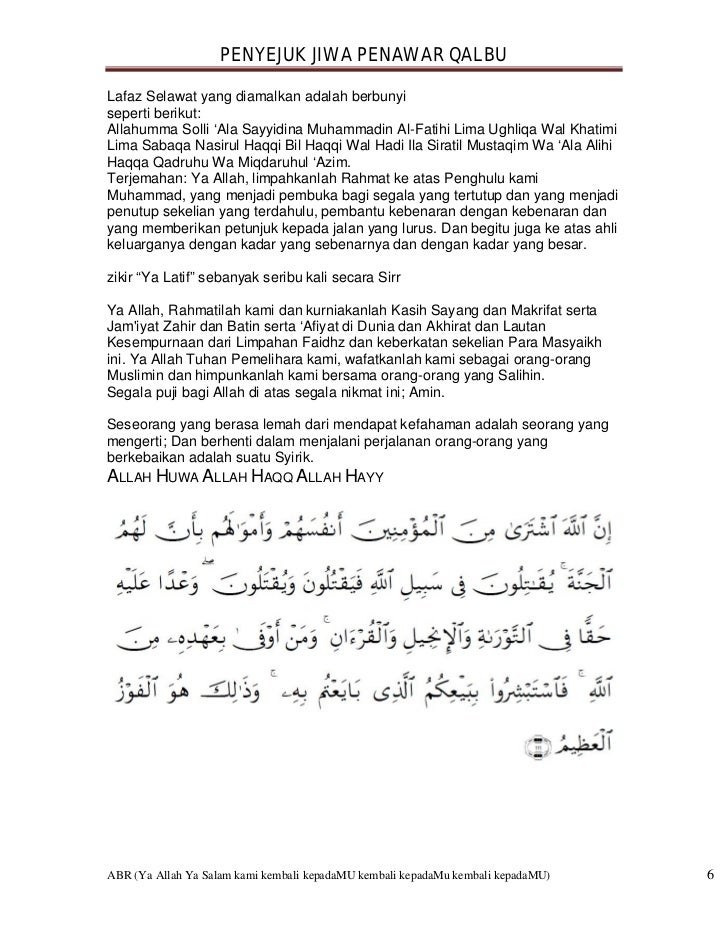 PENYEJUK JIWA PENAWAR QALBU
Lafaz Selawat yang diamalkan adalah berbunyi
seperti berikut:
Allahumma Solli ‘Ala Sayyidina Muhammadin Al-Fatihi Lima Ughliqa Wal Khatimi
Lima Sabaqa Nasirul Haqqi Bil Haqqi Wal Hadi Ila Siratil Mustaqim Wa ‘Ala Alihi
Haqqa Qadruhu Wa Miqdaruhul ‘Azim.
Terjemahan: Ya Allah, limpahkanlah Rahmat ke atas Penghulu kami
Muhammad, yang menjadi pembuka bagi segala yang tertutup dan yang menjadi
penutup sekelian yang terdahulu, pembantu kebenaran dengan kebenaran dan
yang memberikan petunjuk kepada jalan yang lurus. Dan begitu juga ke atas ahli
keluarganya dengan kadar yang sebenarnya dan dengan kadar yang besar.
zikir “Ya Latif” sebanyak seribu kali secara Sirr
Ya Allah, Rahmatilah kami dan kurniakanlah Kasih Sayang dan Makrifat serta
Jam'iyat Zahir dan Batin serta ‘Afiyat di Dunia dan Akhirat dan Lautan
Kesempurnaan dari Limpahan Faidhz dan keberkatan sekelian Para Masyaikh
ini. Ya Allah Tuhan Pemelihara kami, wafatkanlah kami sebagai orang-orang
Muslimin dan himpunkanlah kami bersama orang-orang yang Salihin.
Segala puji bagi Allah di atas segala nikmat ini; Amin.
Seseorang yang berasa lemah dari mendapat kefahaman adalah seorang yang
mengerti; Dan berhenti dalam menjalani perjalanan orang-orang yang
berkebaikan adalah suatu Syirik.
ALLAH HUWA ALLAH HAQQ ALLAH HAYY
إِنَّ ٱللَّهَ ٱشْتَرَىٰ مِنَ ٱلْمُؤْمِنِينَ أَنفُسَهُمْ وَأَمْوَٰلَهُم بِأَنَّ لَهُمُ
ٱلْجَنَّةَ ۚ يُقَٰتِلُونَ فِى سَبِيلِ ٱللَّهِ فَيَقْتُلُونَ وَيُقْتَلُونَ ۖ وَعْدًا عَلَيْهِ
حَقًّا فِى ٱلتَّوْرَىٰةِ وَٱلْإِنجِيلِ وَٱلْقُرْءَانِ ۚ وَمَنْ أَوْفَىٰ بِعَهْدِهِۦ مِنَ
ٱللَّهِ ۚ فَٱسْتَبْشِرُوا۟ بِبَيْعِكُمُ ٱلَّذِى بَايَعْتُم بِهِۦ ۚ وَذَٰلِكَ هُوَ ٱلْفَوْزُ
ٱلْعَظِيمُ ١١١
ABR (Ya Allah Ya Salam kami kembali kepadaMU kembali kepadaMu kembali kepadaMU) 6